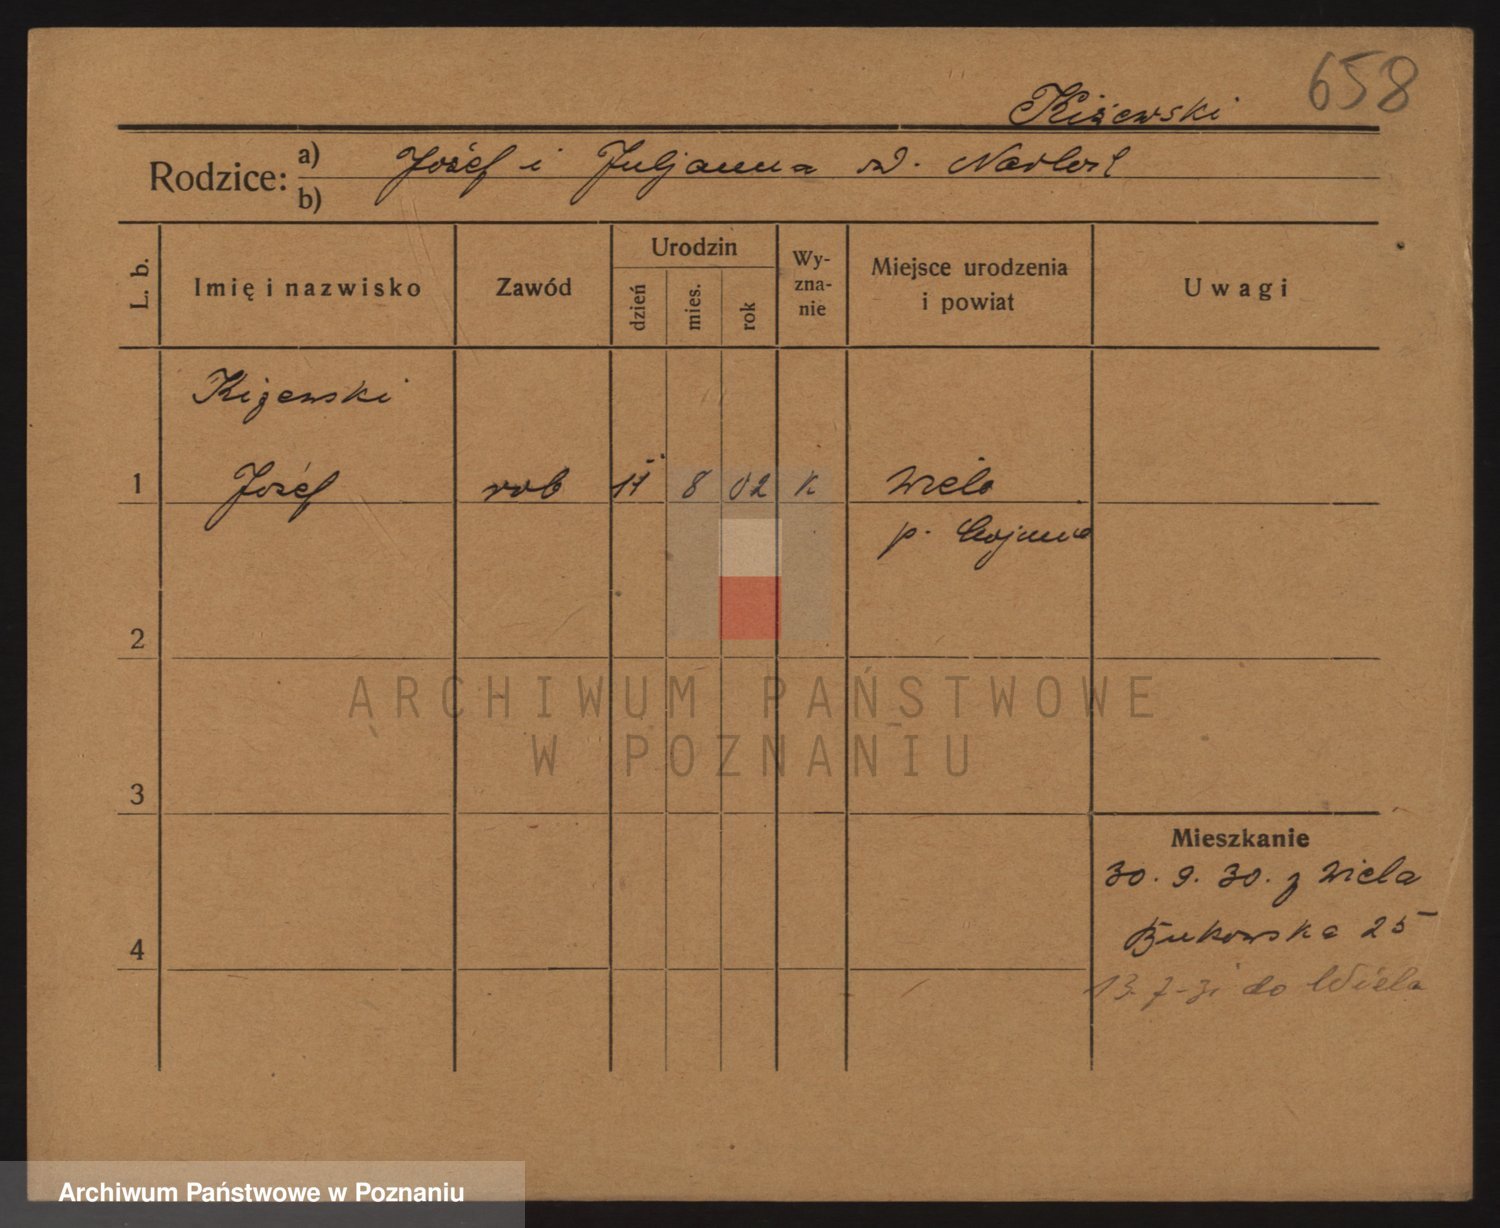 658
Kiżewski
Rodzice: a) Józef i Juljanna
b)
L. b. Imię i nazwisko Zawód Urodzin dzień mies. rok Wy-zna-nie Miejsce urodzenia i powiat Uwagi
Kiżewski
1 Józef rob 11 8 02 k Wiela
p.
2
ARCHIWUM PAŃSTWOWE
W POZNANIU
3
Mieszkanie
30. 9. 30. z Wiela
Bukowska 25
4
13. 7-31 do Wiela
Archiwum Państwowe w Poznaniu